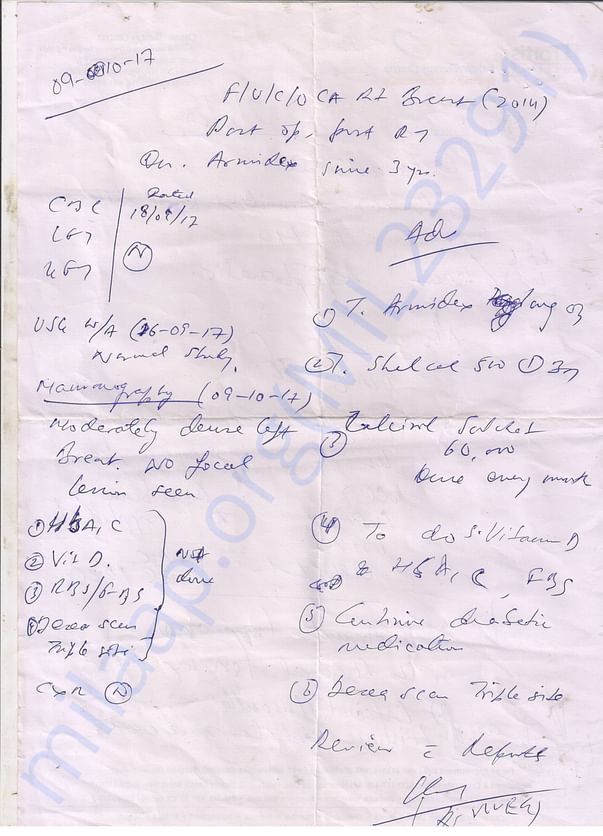 09-10-17
F/U/C/O CA Rt Breast (2014)
Post op, post RT
On. Armidex since 3 yrs.
CBC
LFT
KFT
Dated
18/09/17
N
Adv
USG W/A (26-09-17)
Normal Study.
Mammography (09-10-17)
Moderately dense left
Breast. No focal
lesion seen
① HbA1C
② Vit D.
③ RBS/FBS
④ Dexa scan
Triple site
Not
done
CXR N
① T. Armidex 1mg OD
② T. Shelcal 500 ① BD
③ Calcirol Sachet
60,000
Once every month
④ To do S. Vitamin D
& HbA1C, FBS
⑤ Continue diabetic
medication
⑥ Dexa scan Triple site
Review c Reports
milaap.org(MIL 232291)